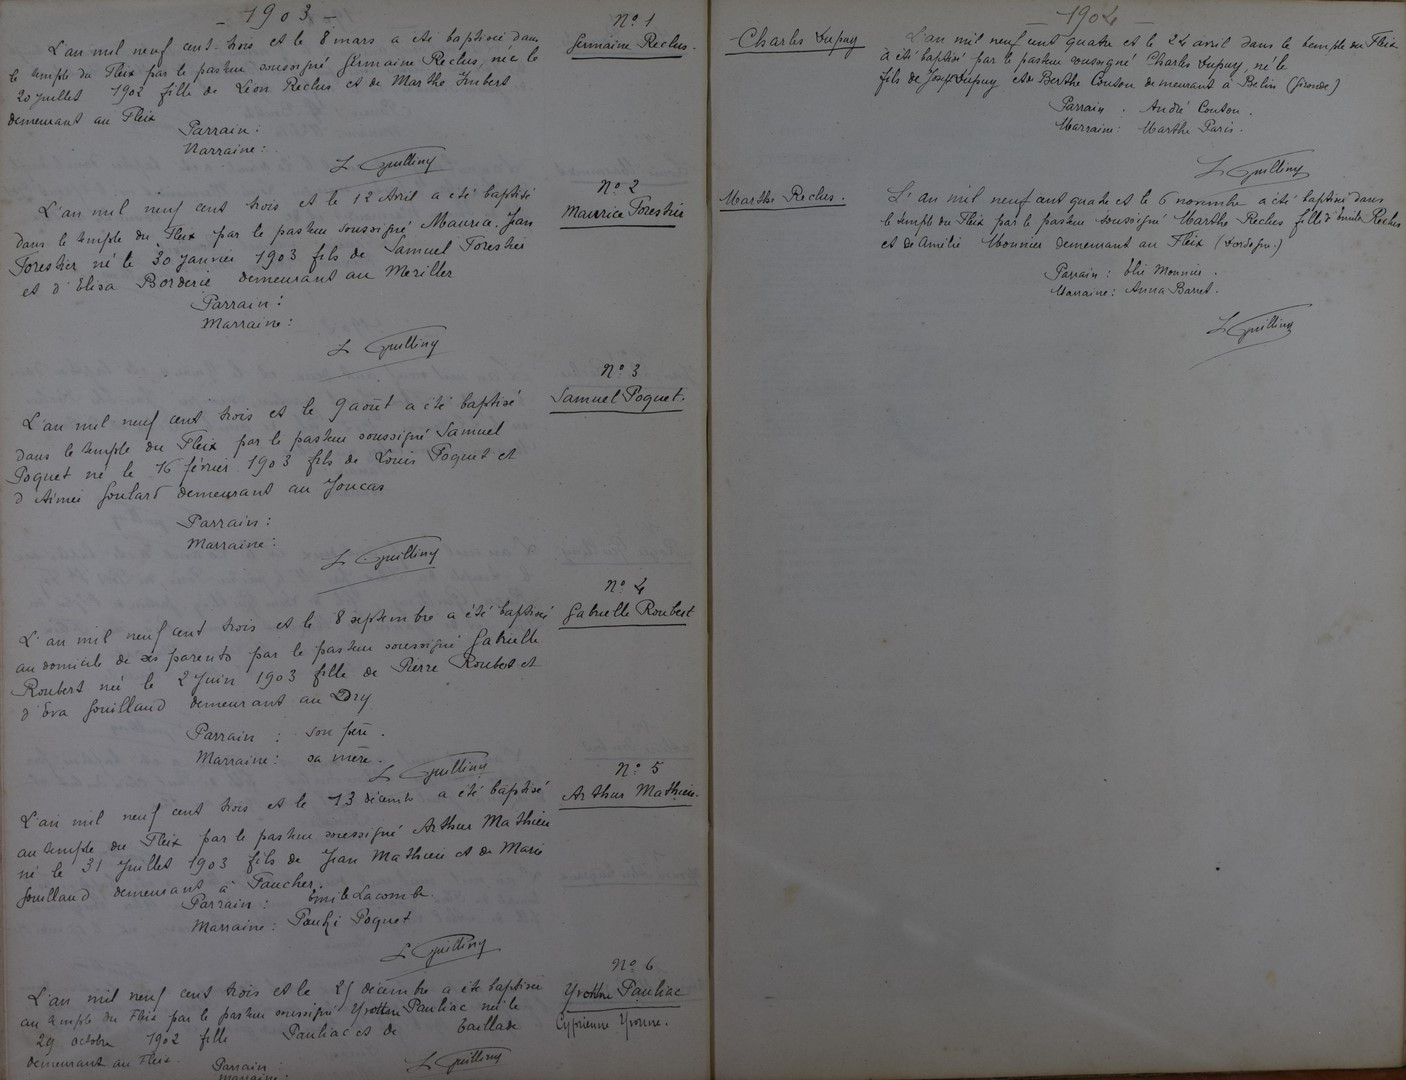 - 1903 -
N° 1
Germaine Reclus.
L'an mil neuf cent trois et le 8 mars a été baptisée dans
le temple du Fleix par le pasteur soussigné Germaine Reclus, née le
20 juillet 1902 fille de Léon Reclus et de Marthe Imbert
demeurant au Fleix
Parrain :
Marraine :
L Guilling
N° 2
Maurice Forestier
L'an mil neuf cent trois et le 12 Avril a été baptisé
dans le temple du Fleix par le pasteur soussigné Maurice Jean
Forestier né le 30 janvier 1903 fils de Samuel Forestier
et d'Elisa Borderie demeurant au Meriller
Parrain :
Marraine :
L Guilling
N° 3
Samuel Poquet.
L'an mil neuf cent trois et le 9 août a été baptisé
dans le temple du Fleix par le pasteur soussigné Samuel
Poquet né le 16 février 1903 fils de Louis Poquet et
d'Aimée Goulard demeurant au Joncas
Parrain :
Marraine :
L Guilling
N° 4
Gabrielle Roubert
L'an mil neuf cent trois et le 8 septembre a été baptisée
au domicile de ses parents par le pasteur soussigné Gabrielle
Roubert née le 2 Juin 1903 fille de Pierre Roubert et
d'Eva Gouilland demeurant au Dry
Parrain : son père.
Marraine : sa mère.
L Guilling
N° 5
Arthur Mathieu.
L'an mil neuf cent trois et le 13 décembre a été baptisé
au temple du Fleix par le pasteur soussigné Arthur Mathieu
né le 31 Juillet 1903 fils de Jean Mathieu et de Marie
Gouilland demeurant à Faucher.
Parrain : Emile Lacombe.
Marraine : Poquet
L Guilling
N° 6
Yvonne Pauliac
Cyprienne Yvonne.
L'an mil neuf cent trois et le 25 décembre a été baptisée
au temple du Fleix par le pasteur soussigné Yvonne Pauliac née le
29 octobre 1902 fille Pauliac et de Taillade
demeurant au Fleix.
Parrain :
Marraine :
L Guilling
- 1904 -
Charles Dupuy
L'an mil neuf cent quatre et le 24 avril dans le temple du Fleix
a été baptisé par le pasteur soussigné Charles Dupuy, né le
fils de Joseph Dupuy et de Berthe Couton demeurant à Belin (Gironde)
Parrain : André Couton.
Marraine : Marthe Paris.
L Guilling
Marthe Reclus.
L'an mil neuf cent quatre et le 6 novembre a été baptisée dans
le temple du Fleix par le pasteur soussigné Marthe Reclus fille d'Emile Reclus
et de Amélie Monnier demeurant au Fleix (Dordogne.)
Parrain : Elie Monnier.
Marraine : Anna Barret.
L Guilling